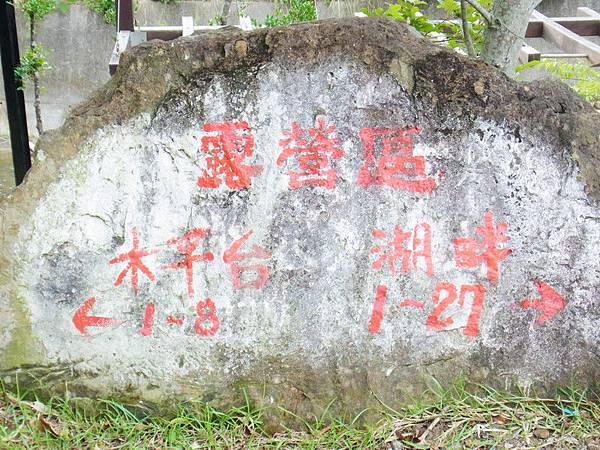 露營區
木平台 湖畔
← 1-8 1-27 →